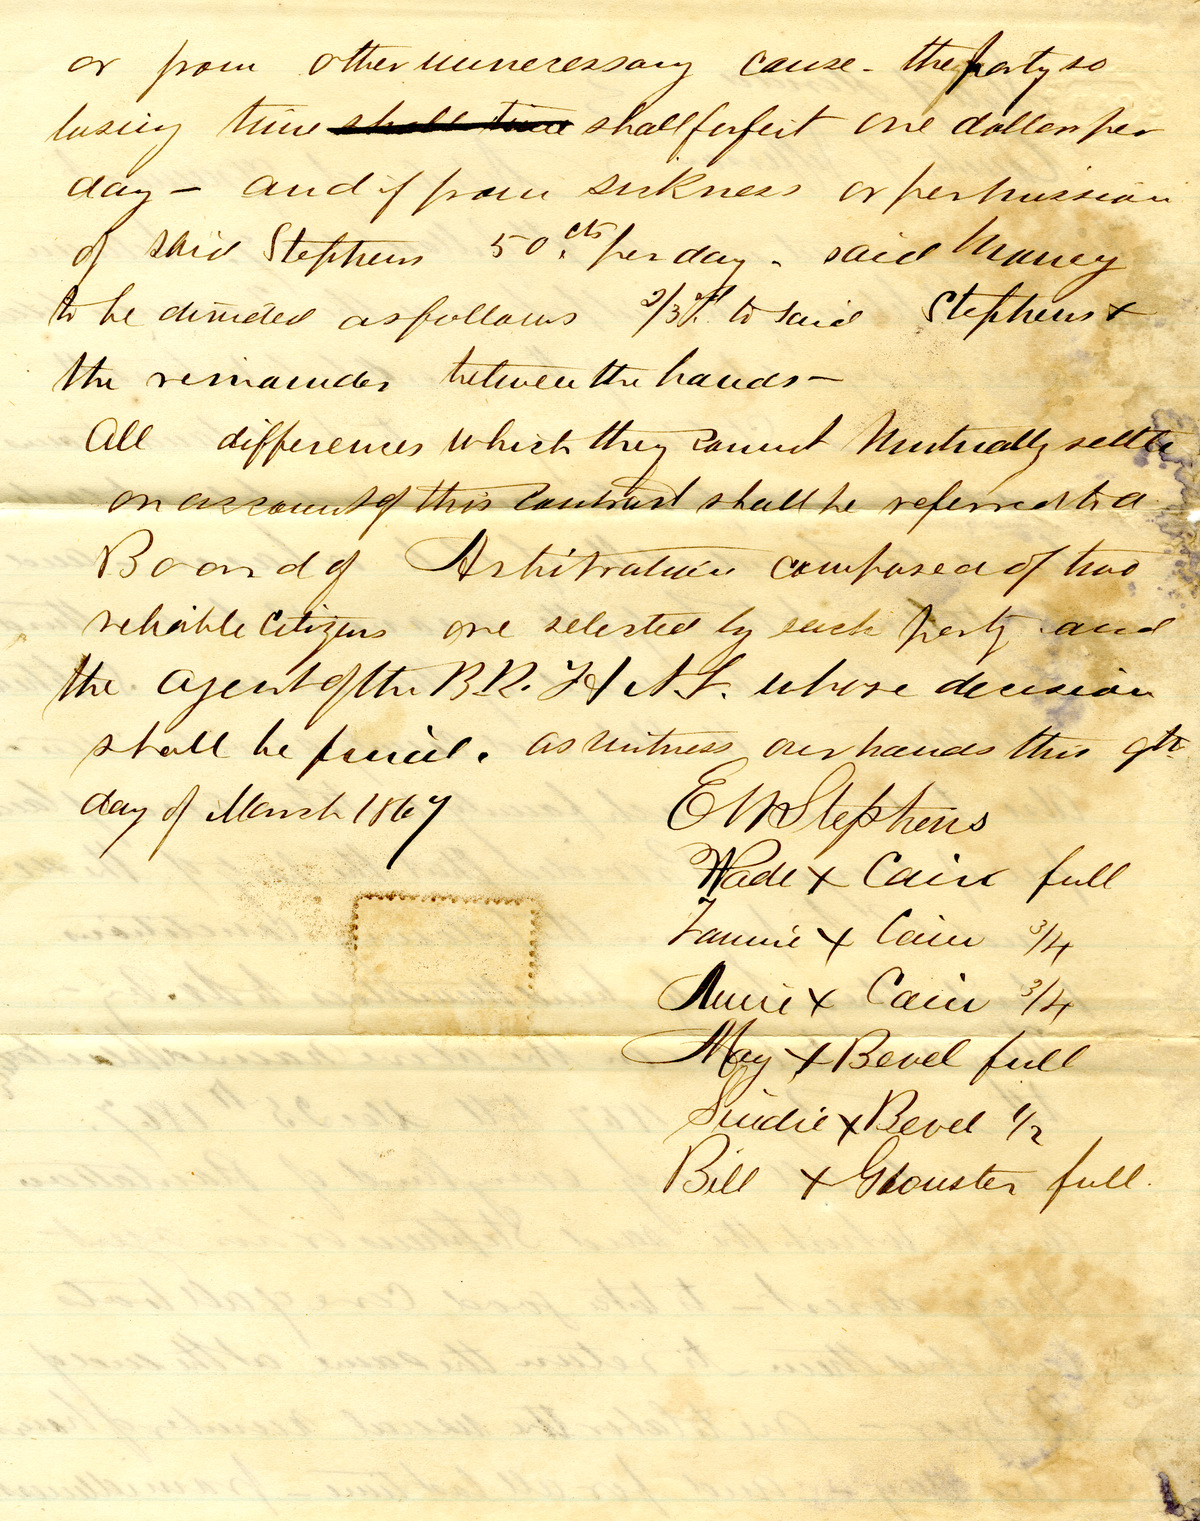 or from other unnecessary cause - the party so
losing time shall time shall forfeit one dollar per
day - and if from sickness or permission
of said Stephens 50 cts per day - said Money
to be divided as follows 2/3rd to said Stephens &
the remainder between the hands -
All differences which they cannot Mutually settle
on account of this contract shall be referred to a
Board of Arbitration composed of two
reliable Citizens one selected by each party and
the Agent of the B.R. F & A.L. whose decision
shall be final. as witness our hands this 9th
day of March 1867
E W Stephens
Wade x Cain full
Fannie x Cain 3/4
Annie x Cain 3/4
May x Bevel full
Sindie x Bevel 1/2
Bill x Glouster full.